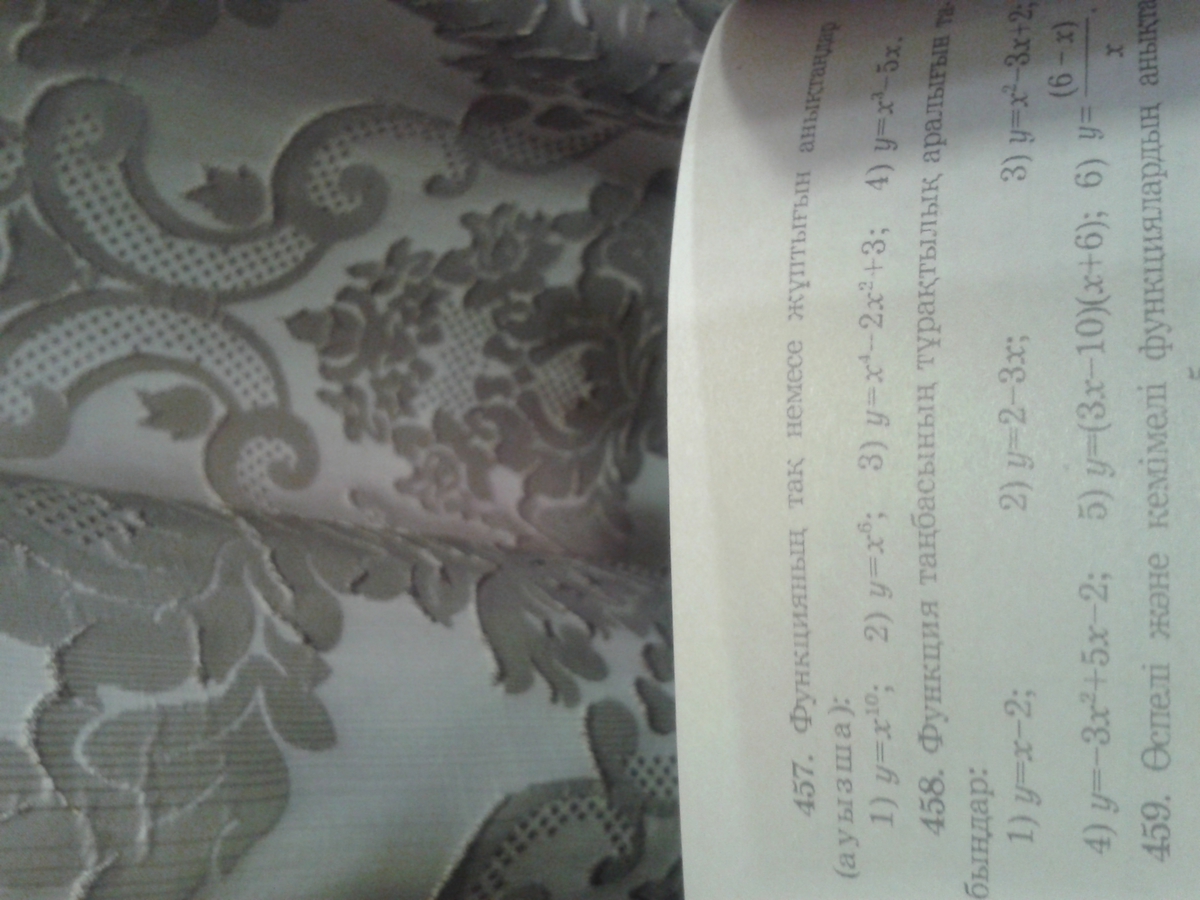 457. Функцияның так немесе жұптығын анықтаңдар
(ауызша):
1) y=x¹⁰; 2) y=x⁶; 3) y=x⁴−2x²+3; 4) y=x³−5x.
458. Функция таңбасының тұрақтылық аралығын
быңдар:
1) y=x−2; 2) y=2−3x; 3) y=x²−3x+2;
4) y=−3x²+5x−2; 5) y=(3x−10)(x+6); 6) y=(6−x)/x.
459. Өспелі және кемімелі функциялардың анықта
5